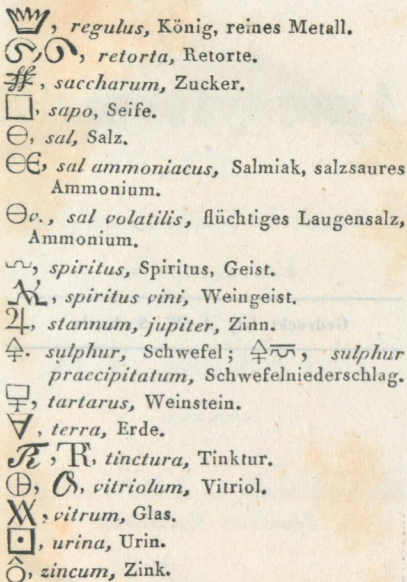 , regulus, König, reines Metall.
, retorta, Retorte.
, saccharum, Zucker.
, sapo, Seife.
, sal, Salz.
, sal ammoniacus, Salmiak, salzsaures
Ammonium.
v., sal volatilis, flüchtiges Laugensalz,
Ammonium.
, spiritus, Spiritus, Geist.
, spiritus vini, Weingeist.
♃, stannum, jupiter, Zinn.
🜍. sulphur, Schwefel; , sulphur
praecipitatum, Schwefelniederschlag.
, tartarus, Weinstein.
, terra, Erde.
R, R, tinctura, Tinktur.
, vitriolum, Vitriol.
, vitrum, Glas.
, urina, Urin.
, zincum, Zink.